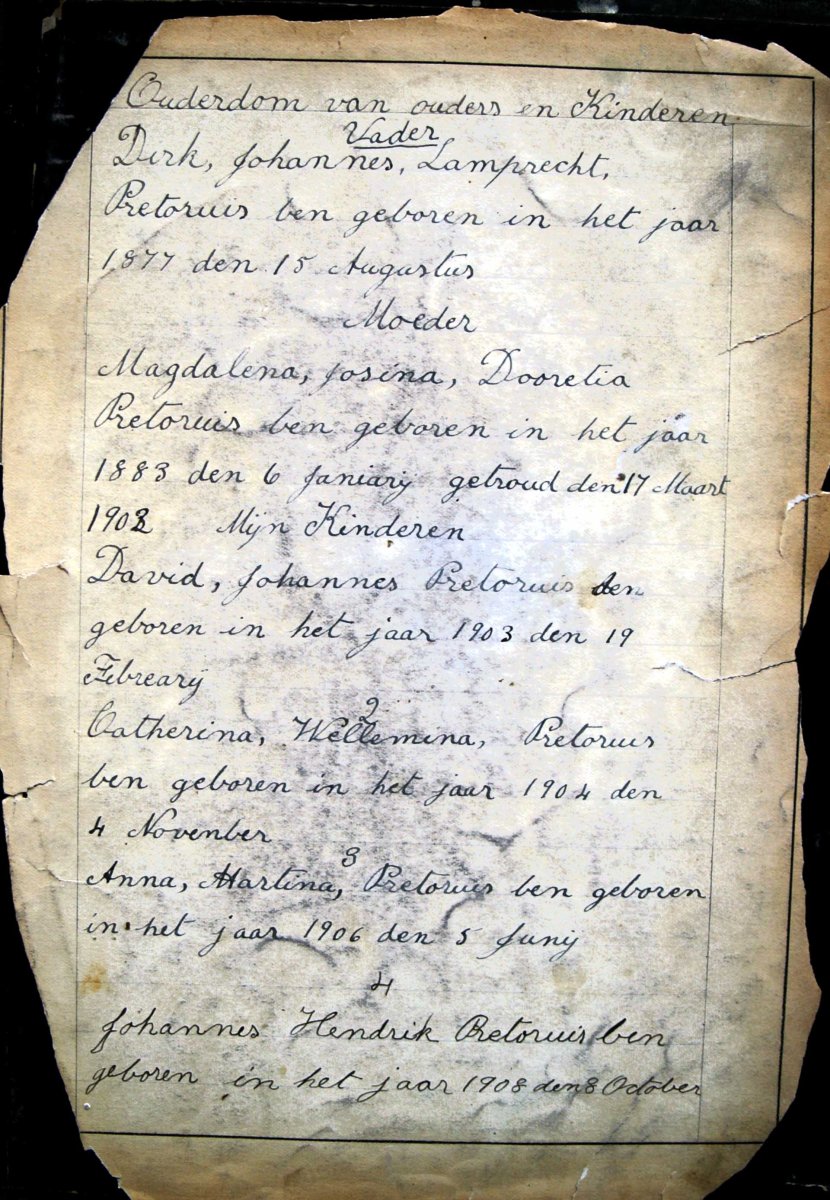 Ouderdom van ouders en Kinderen
Vader
Dirk, Johannes, Lamprecht,
Pretoruis ben geboren in het jaar
1877 den 15 Augustus
Moeder
Magdalena, Josina, Dooretia
Pretoruis ben geboren in het jaar
1883 den 6 Janiarij getroud den 17 Maart
1902 Mijn Kinderen
David, Johannes Pretoruis ben
geboren in het jaar 1903 den 19
Febrearij
2
Catherina, Wellemina, Pretoruis
ben geboren in het jaar 1904 den
4 Novenber
3
Anna, Martina, Pretoruis ben geboren
in het jaar 1906 den 5 Junij
4
Johannes Hendrik Pretoruis ben
geboren in het jaar 1908 den 8 October